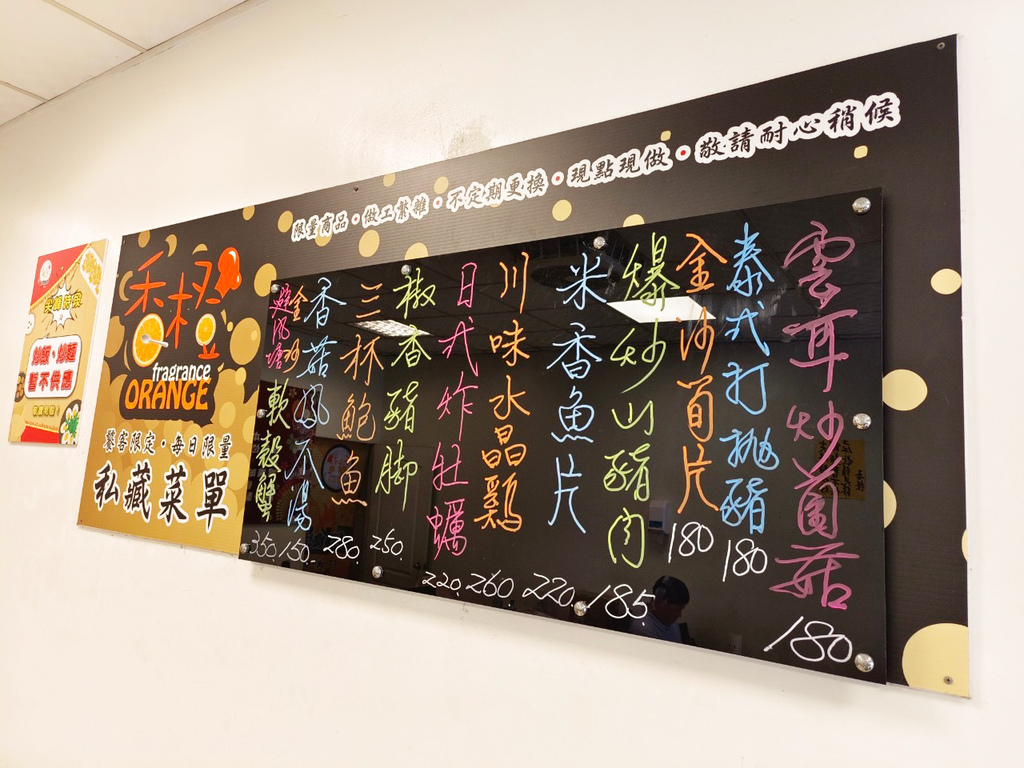 限量商品・做工繁雜・不定期更換・現點現做・敬請耐心稍候
雲耳炒菌菇
180
泰式打拋豬
180
金沙筍片
180
爆炒山豬肉
185.
米香魚片
220.
川味水晶鷄
260.
日式炸牡蠣
220.
椒香豬脚
250.
三杯鮑魚
280.
香菇鳳爪湯
150.
避風塘
金沙
軟殼蟹
350.
禾橙
fragrance
ORANGE
饕客限定・每日限量
私藏菜單
炒飯、炒麵
暫不供應